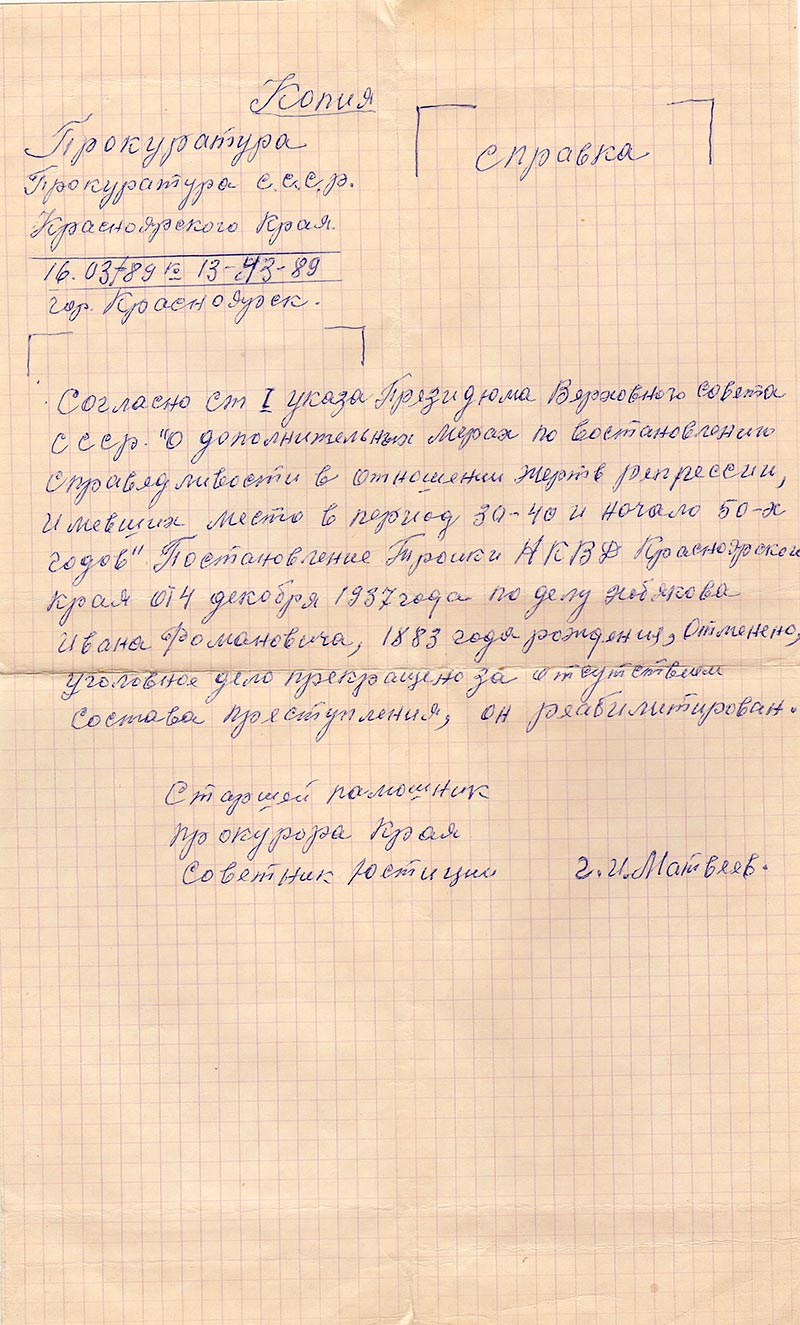 Копия
Прокуратура
Прокуратура С.С.С.р.
Красноярского Края.
16.03-89 № 13-43-89
гор. Красноярск.
справка
Согласно ст I указа Президюма Верховного совета
СССр. "О дополнительных мерах по востановлению
справедливости в отношении жертв репрессии,
имевших место в период 30-40 и начало 50-х
годов" Постановление Тройки НКВД Красноярского
Края от 4 декабря 1937 года по делу
Ивана Романовича, 1883 года рождения, Отменено,
Уголовное дело прекращено за отсутствием
состава преступления, он реабилитирован.
Старшей памошник
прокурора Края
Советник Юстиции
Г.И. Матвеев.